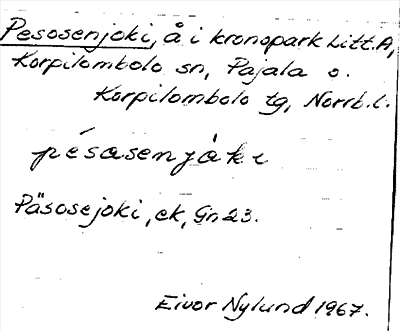 Pesosenjoki, å i kronopark Litt.A,
Korpilombolo sn, Pajala o.
Korpilombolo tg, Norrb.l.
pésasenjåkι
Päsosejoki, ek, Gn 23.
Eivor Nylund 1967.